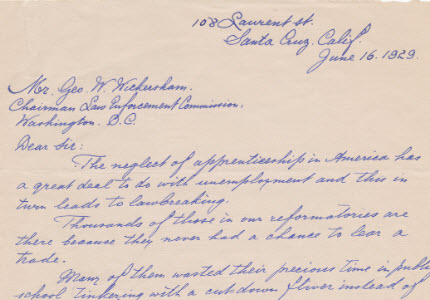 108 Laurent st.
Santa Cruz. Calif.
June 16. 1929.
Mr. Geo. W. Wickersham.
Chairman Law Enforcement Commission.
Washington. D.C.
Dear Sir:
The neglect of apprenticeship in America has
a great deal to do with unemployment and this in
turn leads to lawbreaking.
Thousands of those in our reformatories are
there because they never had a chance to lear a
trade.
Many of them wasted their precious time in public
school tinkering with a cut down fliver instead of